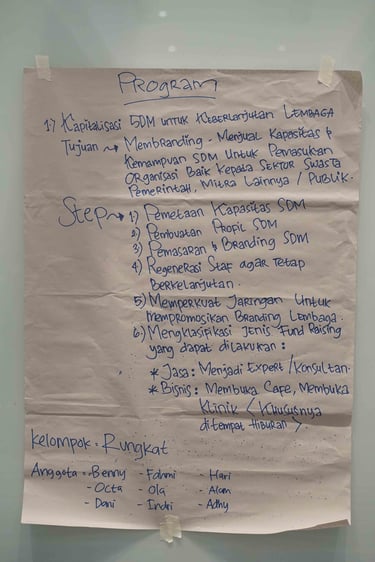 Program
1.) Kapitalisasi SDM untuk Keberlanjutan Lembaga
Tujuan → Membranding - Menjual Kapasitas &
Kemampuan SDM untuk Pemasukan
Organisasi Baik kepada Sektor Swasta
Pemerintah, Mitra Lainnya / Publik.
Step → 1) Pemetaan Kapasitas SDM
2) Pembuatan Profil SDM
3) Pemasaran & Branding SDM
4) Regenerasi Staf agar tetap
Berkelanjutan.
5) Memperkuat Jaringan untuk
mempromosikan Branding Lembaga.
6) Mengklasifikasi Jenis Fund Raising
yang dapat dilakukan :
* Jasa : Menjadi Expert / Konsultan.
* Bisnis : Membuka Cafe, Membuka
Klinik < Khususnya
ditempat Hiburan >
Kelompok = Rungkat
Anggota = - Benny - Fahmi - Hari
- Octa - Ola - Alam
- Dani - Indri - Adhy